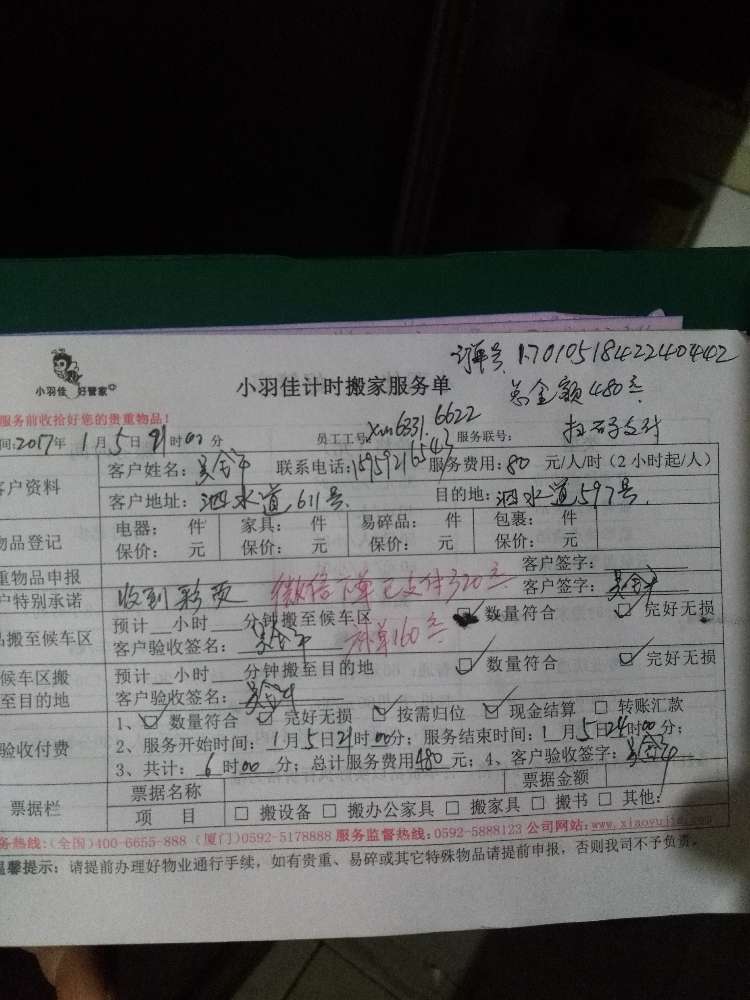 订单号 170105184224040442
小羽佳 好管家
小羽佳计时搬家服务单
总金额480元
服务前收拾好您的贵重物品!
间:2017年1月5日21时00分 员工工号:Xm6331.6622 服务联号: 扫码支付
客户资料
客户姓名: 联系电话:15959216543 服务费用:80 元/人/时(2小时起/人)
客户地址:泗水道611号 目的地:泗水道597号
物品登记
电器: 件 家具: 件 易碎品: 件 包裹: 件
保价: 元 保价: 元 保价: 元 保价: 元
重物品申报 客户签字:
户特别承诺 收到彩页 微信下单已支付320元 客户签字:
品搬至候车区
预计 小时 分钟搬至候车区 数量符合 完好无损
客户验收签名: 补单160元
候车区搬至目的地
预计 小时 分钟搬至目的地 数量符合 完好无损
客户验收签名:
验收付费
1、数量符合 完好无损 按需归位 现金结算 转账汇款
2、服务开始时间:1月5日21时00分;服务结束时间:1月5日24时00分;
3、共计:6时00分;总计服务费用480元;4、客户验收签字:
票据栏
票据名称 票据金额
项 目 搬设备 搬办公家具 搬家具 搬书 其他:
务热线:(全国)400-6655-888 (厦门)0592-5178888 服务监督热线:0592-5888123 公司网站:www.xiaoyujia.com
温馨提示:请提前办理好物业通行手续,如有贵重、易碎或其它特殊物品请提前申报,否则我司不予负责。